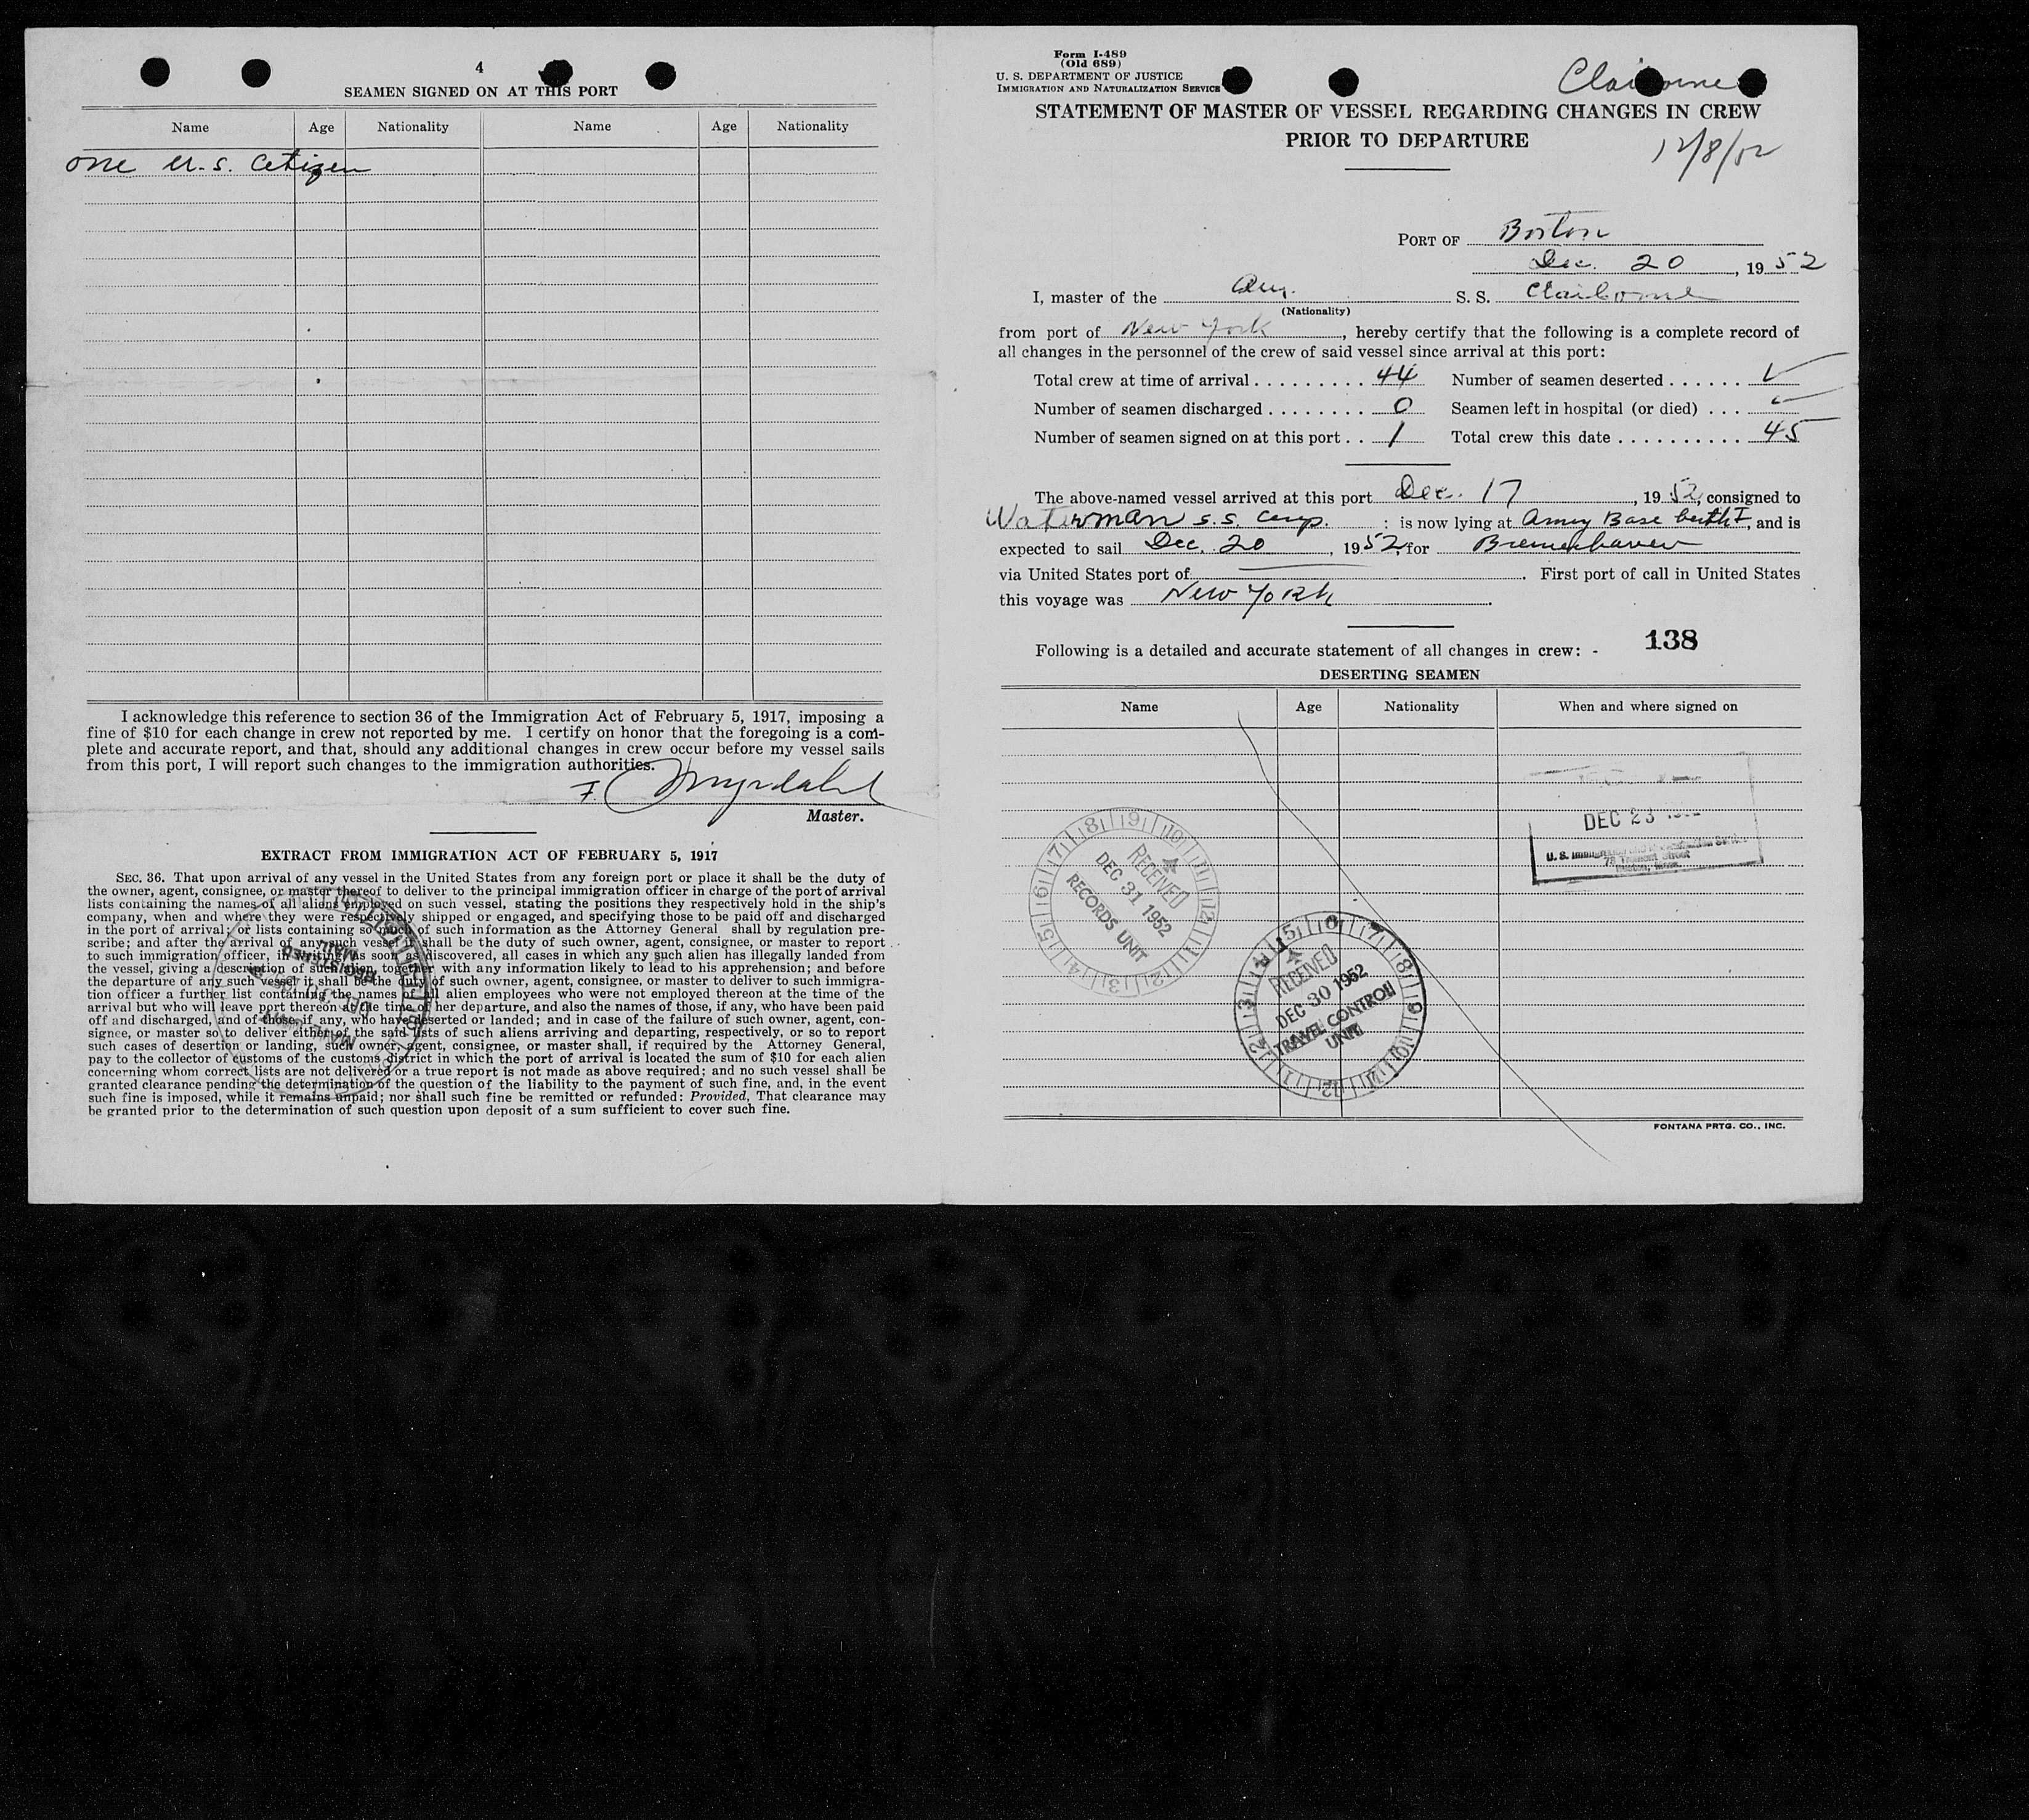 4
SEAMEN SIGNED ON AT THIS PORT
Name Age Nationality Name Age Nationality
one U.S. Citizen
I acknowledge this reference to section 36 of the Immigration Act of February 5, 1917, imposing a
fine of $10 for each change in crew not reported by me. I certify on honor that the foregoing is a com-
plete and accurate report, and that, should any additional changes in crew occur before my vessel sails
from this port, I will report such changes to the immigration authorities.
F. Myrdahl
Master.
EXTRACT FROM IMMIGRATION ACT OF FEBRUARY 5, 1917
SEC. 36. That upon arrival of any vessel in the United States from any foreign port or place it shall be the duty of
the owner, agent, consignee, or master thereof to deliver to the principal immigration officer in charge of the port of arrival
lists containing the names of all aliens employed on such vessel, stating the positions they respectively hold in the ship's
company, when and where they were respectively shipped or engaged, and specifying those to be paid off and discharged
in the port of arrival; or lists containing so much of such information as the Attorney General shall by regulation pre-
scribe; and after the arrival of any such vessel it shall be the duty of such owner, agent, consignee, or master to report
to such immigration officer, in writing, as soon as discovered, all cases in which any such alien has illegally landed from
the vessel, giving a description of such alien, together with any information likely to lead to his apprehension; and before
the departure of any such vessel it shall be the duty of such owner, agent, consignee, or master to deliver to such immigra-
tion officer a further list containing the names of all alien employees who were not employed thereon at the time of the
arrival but who will leave port thereon at the time of her departure, and also the names of those, if any, who have been paid
off and discharged, and of those, if any, who have deserted or landed; and in case of the failure of such owner, agent, con-
signee, or master so to deliver either of the said lists of such aliens arriving and departing, respectively, or so to report
such cases of desertion or landing, such owner, agent, consignee, or master shall, if required by the Attorney General,
pay to the collector of customs of the customs district in which the port of arrival is located the sum of $10 for each alien
concerning whom correct lists are not delivered or a true report is not made as above required; and no such vessel shall be
granted clearance pending the determination of the question of the liability to the payment of such fine, and, in the event
such fine is imposed, while it remains unpaid; nor shall such fine be remitted or refunded: Provided, That clearance may
be granted prior to the determination of such question upon deposit of a sum sufficient to cover such fine.
REGISTERED
MAIL
Form I-489
(Old 689)
U. S. DEPARTMENT OF JUSTICE
IMMIGRATION AND NATURALIZATION SERVICE
Claiborne
STATEMENT OF MASTER OF VESSEL REGARDING CHANGES IN CREW
PRIOR TO DEPARTURE
12/8/52
PORT OF Boston
Dec. 20, 1952
I, master of the Am. S. S. Claiborne
(Nationality)
from port of New York, hereby certify that the following is a complete record of
all changes in the personnel of the crew of said vessel since arrival at this port:
Total crew at time of arrival . . . . . . . . . 44 Number of seamen deserted . . . . . .
Number of seamen discharged . . . . . . . . 0 Seamen left in hospital (or died) . . .
Number of seamen signed on at this port . . 1 Total crew this date . . . . . . . . . . 45
The above-named vessel arrived at this port Dec. 17, 1952, consigned to
Waterman S.S. Corp. ; is now lying at Army Base berth I, and is
expected to sail Dec. 20, 1952, for Bremerhaven
via United States port of ——. First port of call in United States
this voyage was New York.
138
Following is a detailed and accurate statement of all changes in crew: -
DESERTING SEAMEN
Name Age Nationality When and where signed on
DEC 23
U. S. Immigration and Naturalization Service
73 Tremont Street
Boston, Mass.
RECEIVED
DEC 31 1952
RECORDS UNIT
RECEIVED
DEC 30 1952
TRAVEL CONTROL
UNIT
FONTANA PRTG. CO., INC.